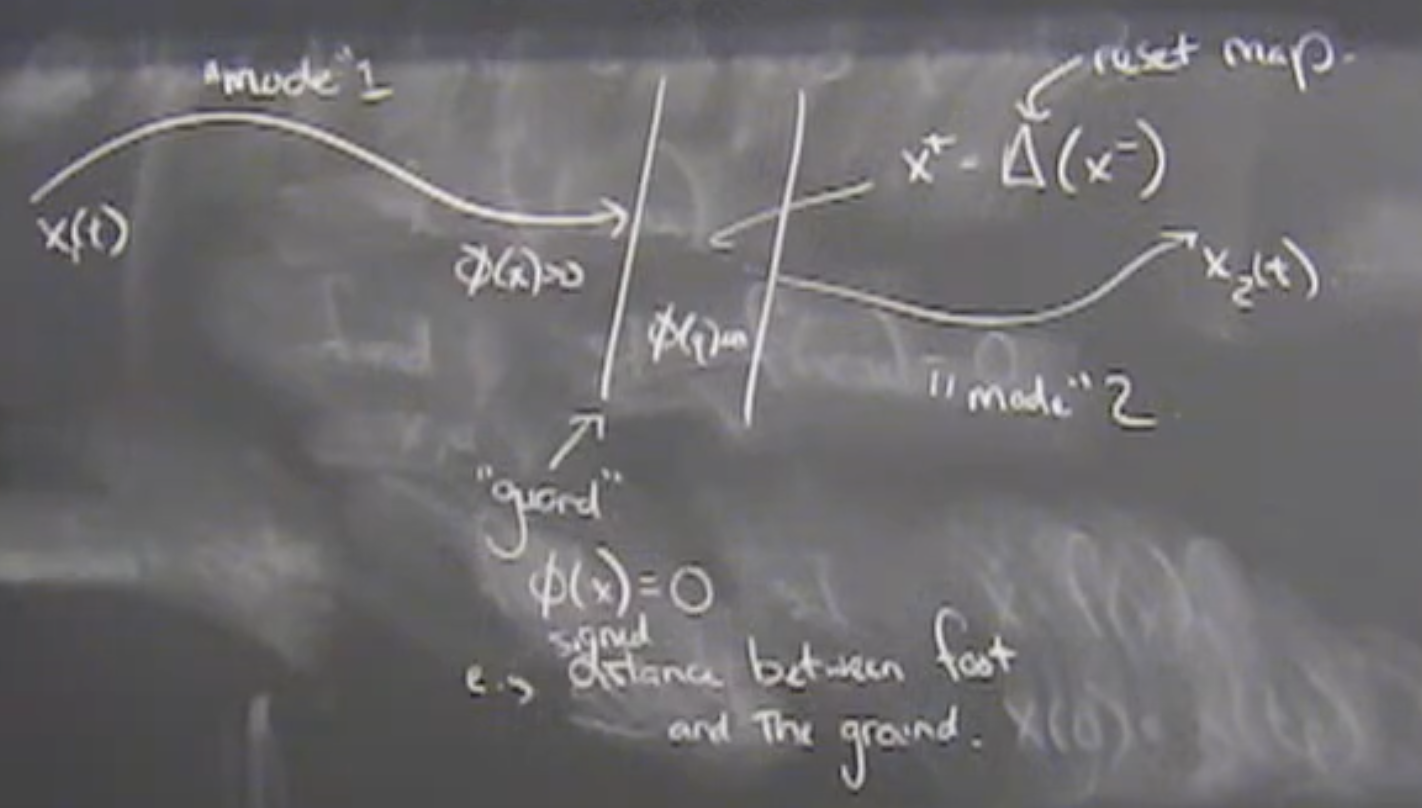 "mode" 1
reset map.
x⁺ = Δ(x⁻)
x₁(t)
ϕ(x)>0
x₂(t)
"mode" 2
"guard"
ϕ(x)=0
signed
e.g. distance between foot
and the ground.